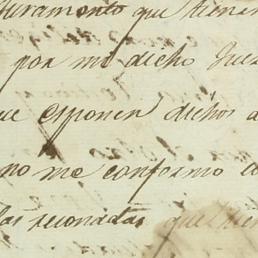 Juramento que tienen
por mi dicho Juez
que esponen dichos
no me conformo
las seconadas que